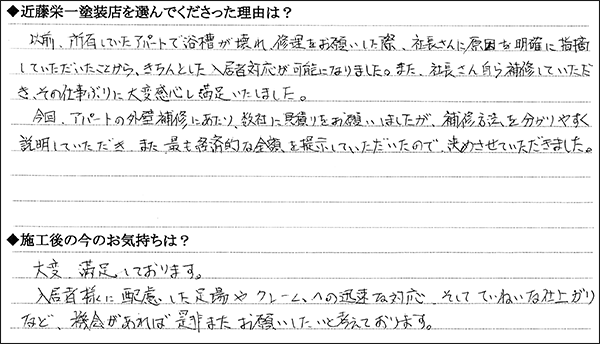 ◆近藤栄一塗装店を選んでくださった理由は？
以前、所有していたアパートで浴槽が壊れ、修理をお願いした際、社長さんに原因を明確に指摘
していただいたことから、きちんとした入居者対応が可能になりました。また、社長さん自ら補修していただ
き、その仕事ぶりに大変感心し満足いたしました。
今回、アパートの外壁補修にあたり、数社に見積りをお願いしましたが、補修方法を分かりやすく
説明していただき、また、最も経済的な金額を提示していただいたので、決めさせていただきました。
◆施工後の今のお気持ちは？
大変、満足しております。
入居者様に配慮した足場やクレームへの迅速な対応、そしてていねいな仕上がり
など、機会があれば是非またお願いしたいと考えております。